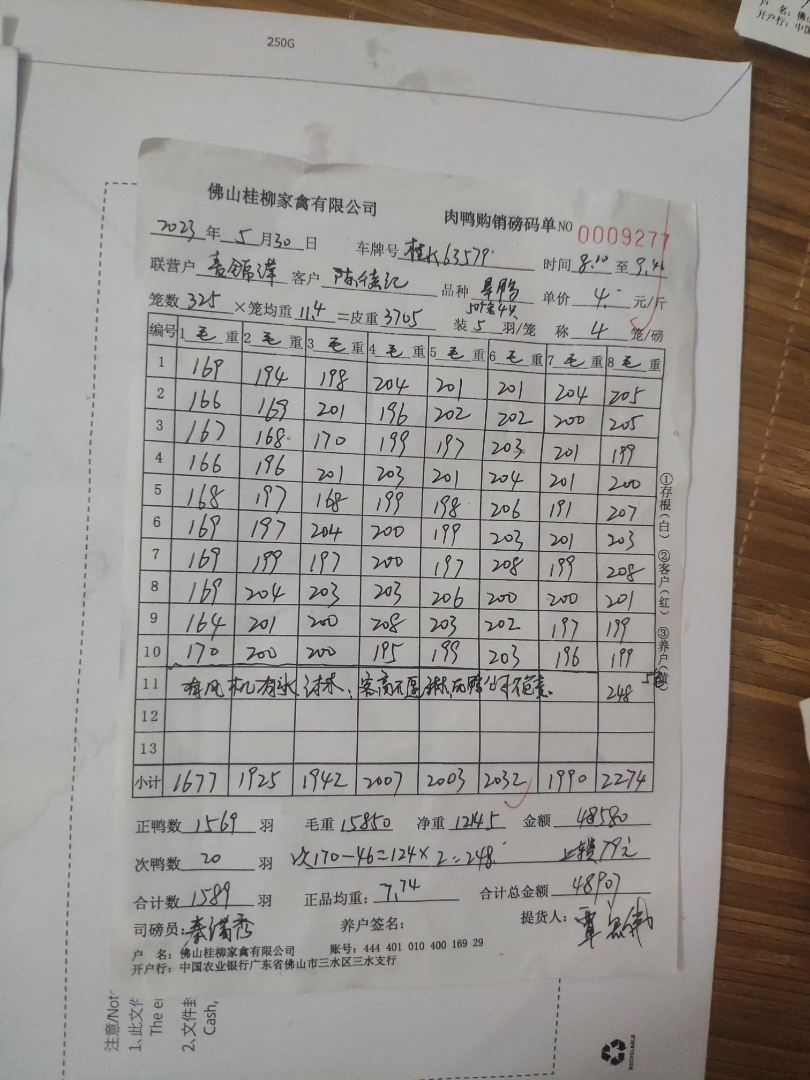 250G
佛山桂柳家禽有限公司
肉鸭购销磅码单 NO 0009277
2023 年 5 月 30 日 车牌号 桂K63579 时间 8.10 至 9.46
联营户 客户 品种 单价 4. 元/斤
笼数 325 ×笼均重 11.4 =皮重 3705 装 5 羽/笼 称 4 笼/磅
编号 1 毛 重 2 毛 重 3 毛 重 4 毛 重 5 毛 重 6 毛 重 7 毛 重 8 毛 重
1 169 194 198 204 201 201 204 205
2 166 169 201 196 202 202 200 205
3 167 168 170 199 197 203 201 199
4 166 196 201 203 201 204 201 200
5 168 197 168 199 198 206 191 207
6 169 197 204 200 199 203 201 203
7 169 199 197 200 197 208 199 208
8 169 204 203 203 206 200 200 201
9 164 201 200 208 203 202 197 199
10 170 200 200 195 199 203 196 199
11 248
12
13
小计 1677 1925 1942 2007 2003 2032 1990 2274
①存根(白) ②客户(红) ③养户(黄)
正鸭数 1569 羽 毛重 15850 净重 12145 金额 48580
次鸭数 20 羽 次170-46=124×2=248. 79元
合计数 1589 羽 正品均重: 7.74 合计总金额 48907
司磅员: 养户签名: 提货人:
户 名: 佛山桂柳家禽有限公司 账号: 444 401 010 400 169 29
开户行: 中国农业银行广东省佛山市三水区三水支行
注意/Not
1、此文件
The er
2、文件封
Cash,
RECYCLABLE